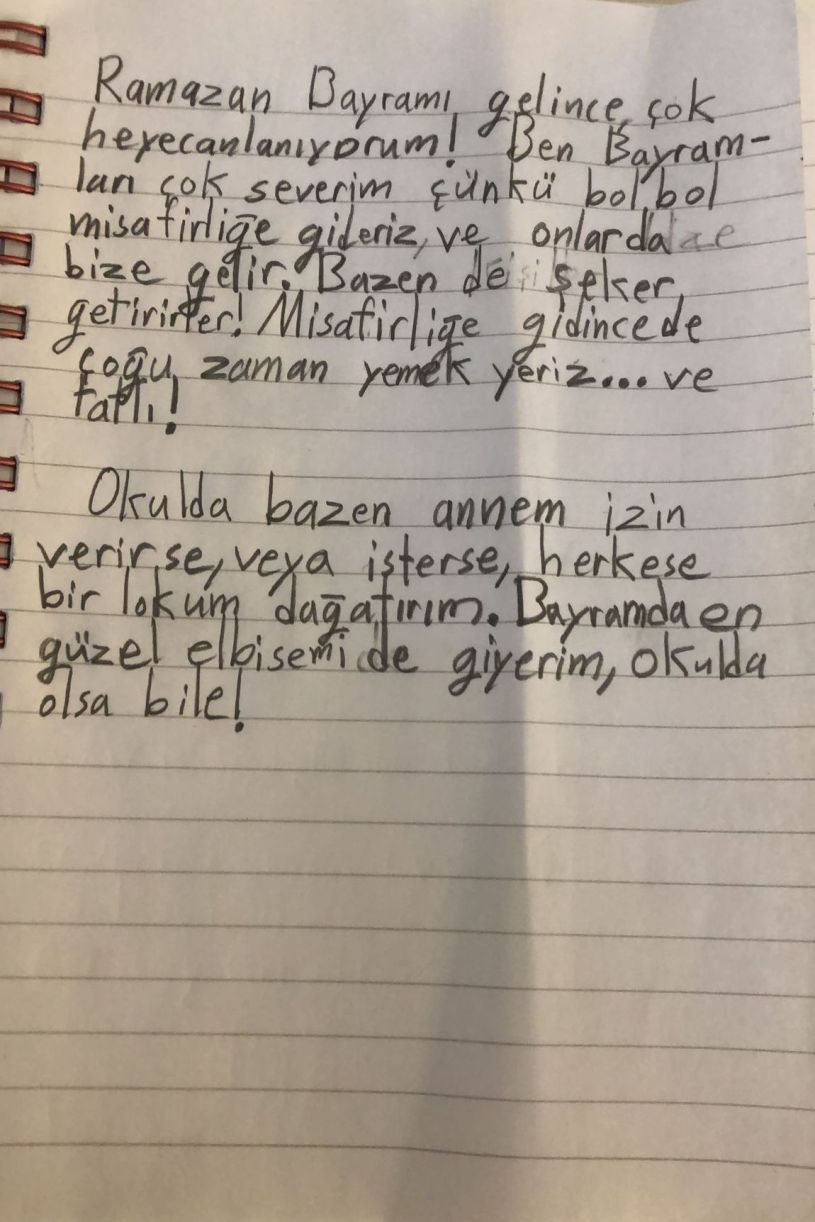 Ramazan Bayramı gelince, çok
heyecanlanıyorum! Ben Bayram-
ları çok severim çünkü bol bol
misafirliğe gideriz, ve onlarda
bize gelir. Bazen de şeker,
getirirler! Misafirliğe gidincede
çoğu zaman yemek yeriz... ve
tatlı!
Okulda bazen annem izin
verirse, veya isterse, herkese
bir lokum dağatırım. Bayramda en
güzel elbisemi de giyerim, okulda
olsa bile!